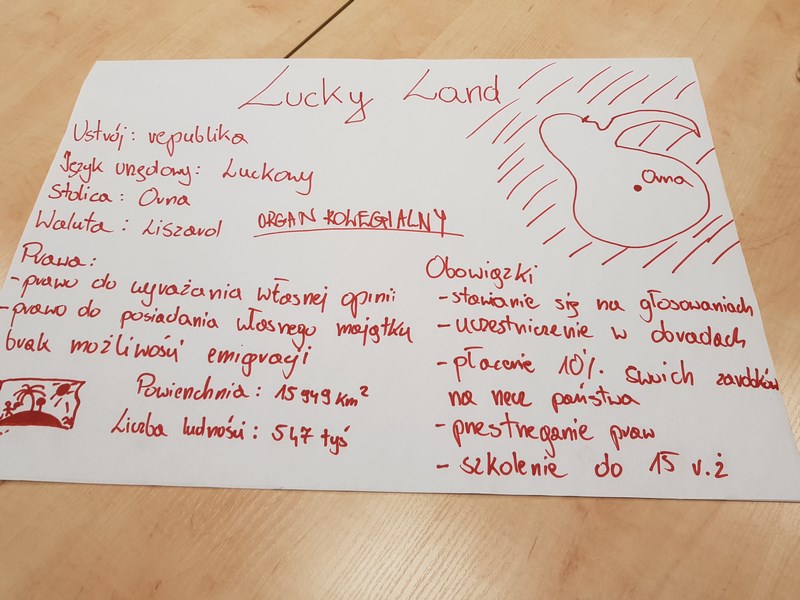 Lucky Land
Ustrój: republika
Język urzędowy: Luckowy
Stolica: Orna
Waluta: Liszarol
ORGAN KOLEGIALNY
Orna
Prawa:
- prawo do wyrażania własnej opinii
- prawo do posiadania własnego majątku
brak możliwośi emigracji
Powierzchnia: 15 949 km²
Liczba ludnośi: 547 tyś
Obowiązki
- stawianie się na głosowaniach
- uczestniczenie w obradach
- płacenie 10% swoich zarobków
na rzecz państwa
- przestrzeganie praw
- szkolenie do 15 r.ż